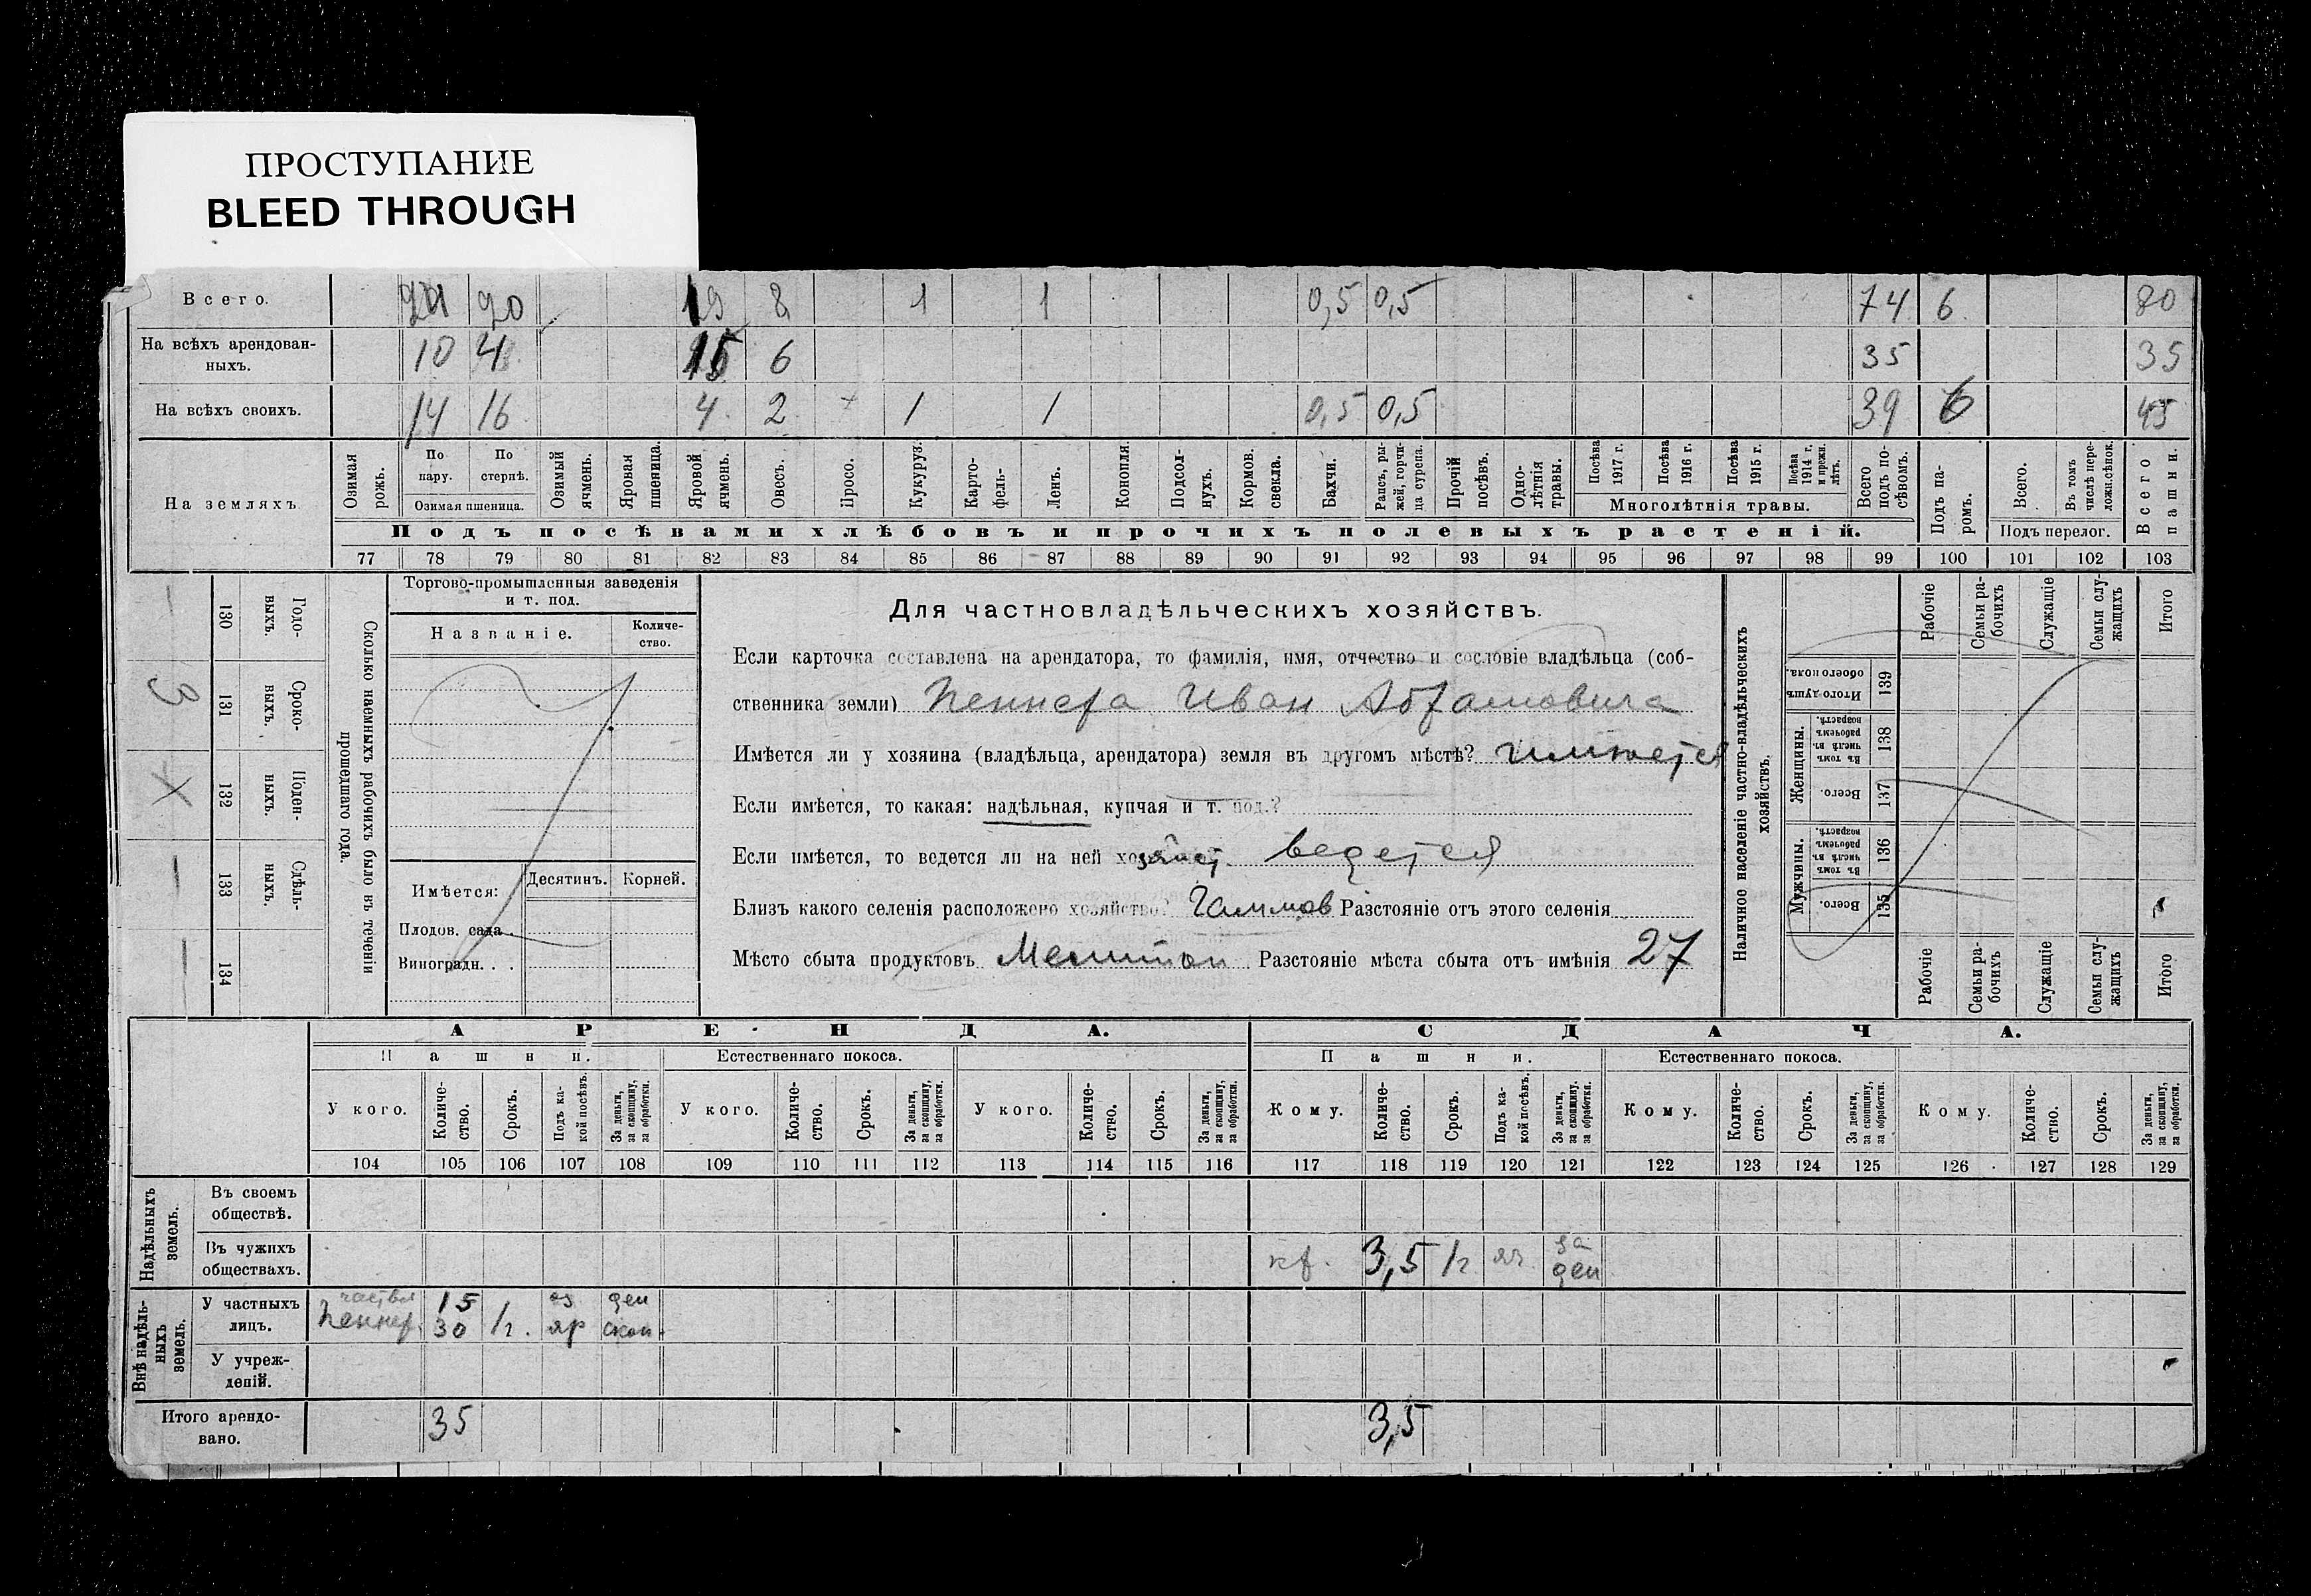 ПРОСТУПАНИЕ
BLEED THROUGH
Всего. 24 20 19 8 1 1 0,5 0,5 74 6 80
На всѣхъ арендован-
ныхъ. 10 4 15 6 35 35
На всѣхъ своихъ. 14 16 4 2 1 1 0,5 0,5 39 6 45
На земляхъ
Озимая рожь.
По пару.
По стернѣ.
Озимая пшеница.
Озимый ячмень.
Яровая пшеница.
Яровой ячмень.
Овесъ.
Просо.
Кукуруз.
Карто-
фель-
Ленъ.
Конопля.
Подсол-
нухъ.
Кормов. свекла.
Бахчи.
Рапсъ, ры-
жей, горчи-
ца сурепа.
Прочій посѣвъ.
Одно-
лѣтнія травы.
Посѣва 1917 г.
Посѣва 1916 г.
Посѣва 1915 г.
Посѣва 1914 г. и прежн. лѣтъ.
Многолѣтнія травы.
Всего подъ по-
сѣвомъ.
Подъ па-
ромъ.
Всего.
Въ томъ числѣ пере-
ложн.сѣнок.
Подъ перелог.
Всего пашни.
Подъ посѣвами хлѣбовъ и прочихъ полевыхъ растеній.
77 78 79 80 81 82 83 84 85 86 87 88 89 90 91 92 93 94 95 96 97 98 99 100 101 102 103
Сколько наемныхъ рабочихъ было въ теченіи
прошедшаго года.
Годо-
выхъ. 130 —
Сроко-
выхъ. 131 3
Поден-
ныхъ. 132 X
Сдѣль-
ныхъ. 133 —
134 —
Торгово-промышленныя заведенія
и т. под.
Названіе.
Количе-
ство.
Имѣется: Десятинъ. Корней.
Плодов. сада .
Виноградн. . .
Для частновладѣльческихъ хозяйствъ.
Если карточка составлена на арендатора, то фамилія, имя, отчество и сословіе владѣльца (соб-
ственника земли) Пеннера Иван Абрамовича
Имѣется ли у хозяина (владѣльца, арендатора) земля въ другомъ мѣстѣ? имѣется
Если имѣется, то какая: надѣльная, купчая и т. под.?
Если имѣется, то ведется ли на ней хозяйст. ведется
Близъ какого селенія расположено хозяйство? Разстояніе отъ этого селенія
Мѣсто сбыта продуктовъ Разстояніе мѣста сбыта отъ имѣнія 27
Наличное населеніе частно-владѣльческихъ
хозяйствъ.
Рабочіе
Семьи ра-
бочихъ
Служащіе
Семьи слу-
жащихъ
Итого
Итого душъ обоего пола. 139
Женщины.
Въ томъ числѣ въ рабочемъ возрастѣ. 138
Всего. 137
Мужчины.
Въ томъ числѣ въ рабочемъ возрастѣ. 136
Всего. 135
Рабочіе
Семьи ра-
бочихъ
Служащіе
Семьи слу-
жащихъ
Итого
АРЕНДА. СДАЧА.
Пашни. Естественнаго покоса. Пашни. Естественнаго покоса.
У кого. Количе-
ство. Срокъ. Подъ ка-
кой посѣвъ. За деньги, за скопщину, за обработки.
У кого. Количе-
ство. Срокъ. За деньги, за скопщину, за обработки.
У кого. Количе-
ство. Срокъ. За деньги, за скопщину, за обработки.
Кому. Количе-
ство. Срокъ. Подъ ка-
кой посѣвъ. За деньги, за скопщину, за обработки.
Кому. Количе-
ство. Срокъ. За деньги, за скопщину, за обработки.
Кому. Количе-
ство. Срокъ. За деньги, за скопщину, за обработки.
104 105 106 107 108 109 110 111 112 113 114 115 116 117 118 119 120 121 122 123 124 125 126 127 128 129
Надѣльныхъ земель.
Въ своемъ
обществѣ.
Въ чужихъ
обществахъ. кр. 3,5 1 г. яр. за ден
Внѣ надѣль-
ныхъ земель.
У частныхъ
лицъ. 15 оз ден
Пеннер. 30 1 г. яр скоп.
У учреж-
деній.
Итого арендо-
вано. 35 3,5